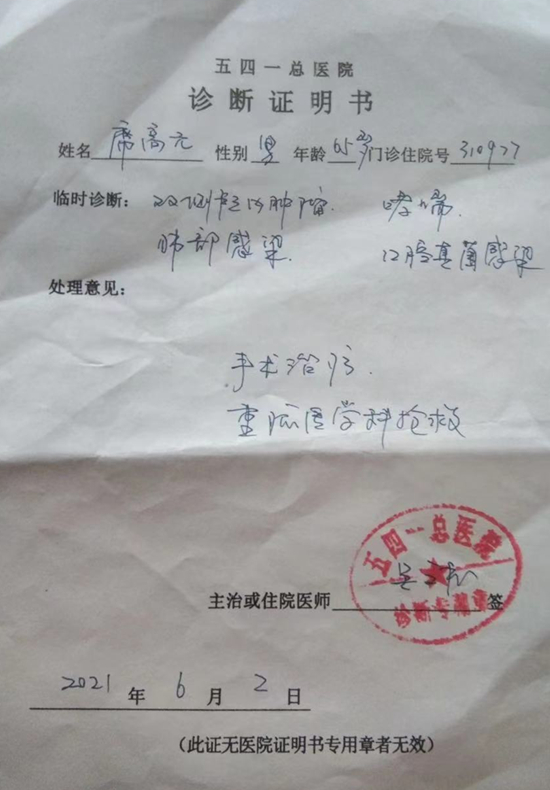 五四一总医院
诊断证明书
姓名 席高元 性别 男 年龄 65岁 门诊住院号 310977
临时诊断： 双侧 肿瘤. 哮喘.
肺部感染. 口腔真菌感染
处理意见：
手术治疗.
重症医学科抢救
五四一总医院
诊断专用章
主治或住院医师 签
2021 年 6 月 2 日
(此证无医院证明书专用章者无效)